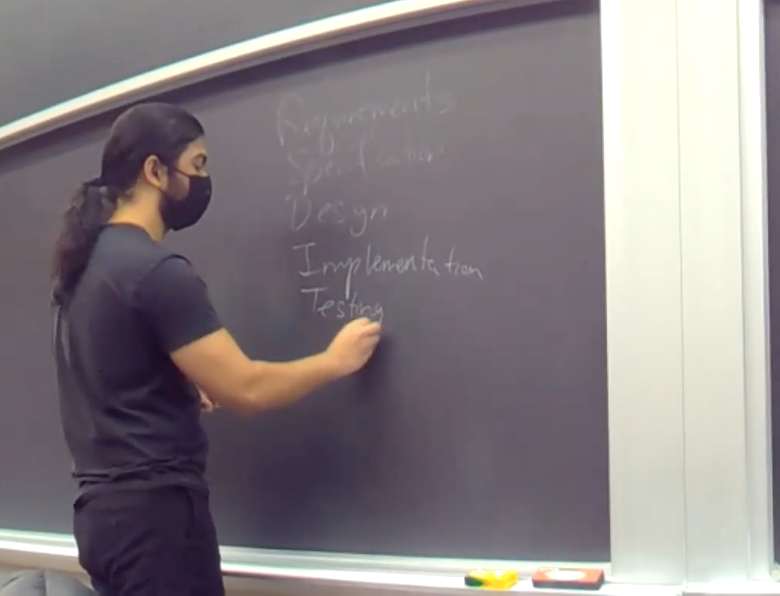 Requirements
Specification
Design
Implementation
Testing